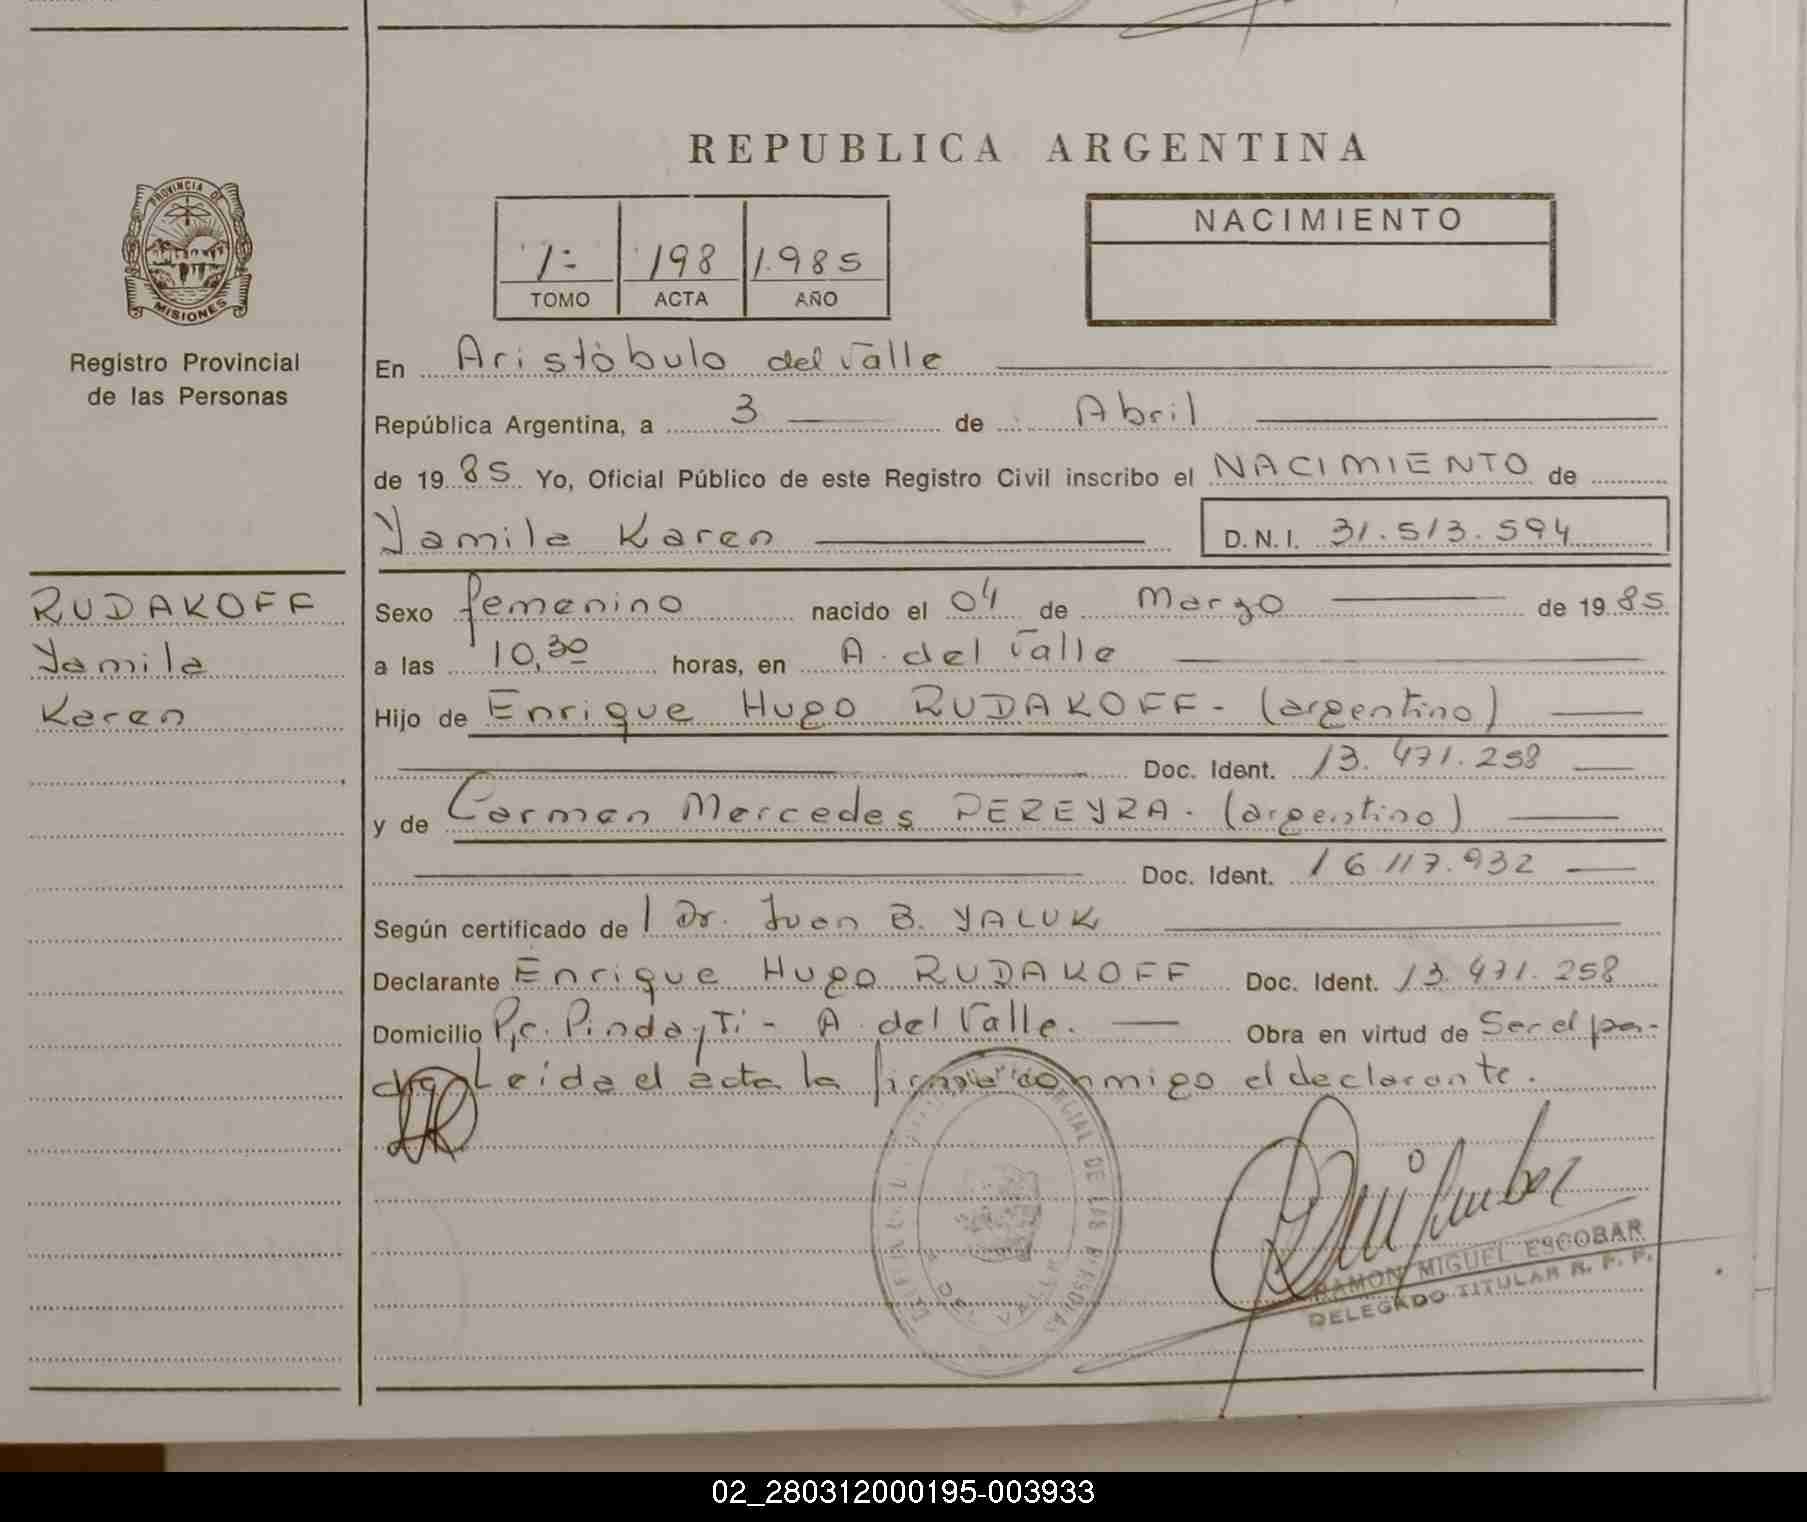 REPUBLICA ARGENTINA
PROVINCIA DE
MISIONES
Registro Provincial
de las Personas
1- 198 1.985
TOMO ACTA AÑO
NACIMIENTO
En Aristóbulo del Valle
República Argentina, a 3 de Abril
de 19 85 Yo, Oficial Público de este Registro Civil inscribo el NACIMIENTO de
Yamila Karen D.N.I. 31.513.594
RUDAKOFF
Yamila
Karen
Sexo femenino nacido el 04 de Marzo de 19 85
a las 10,30 horas, en A. del Valle
Hijo de Enrique Hugo RUDAKOFF - (argentino)
Doc. Ident. 13.471.258
y de Carmen Mercedes PEREYRA - (argentino)
Doc. Ident. 16.117.932
Según certificado de Dr. Juan B. YALUK
Declarante Enrique Hugo RUDAKOFF Doc. Ident. 13.471.258
Domicilio Pje. Pindayti - A. del Valle. Obra en virtud de Ser el pa-
dre Leida el acta la firma conmigo el declarante.
DE LAS PERSONAS
DEL VALLE
RAMON MIGUEL ESCOBAR
DELEGADO TITULAR R. P. P.
02_280312000195-003933